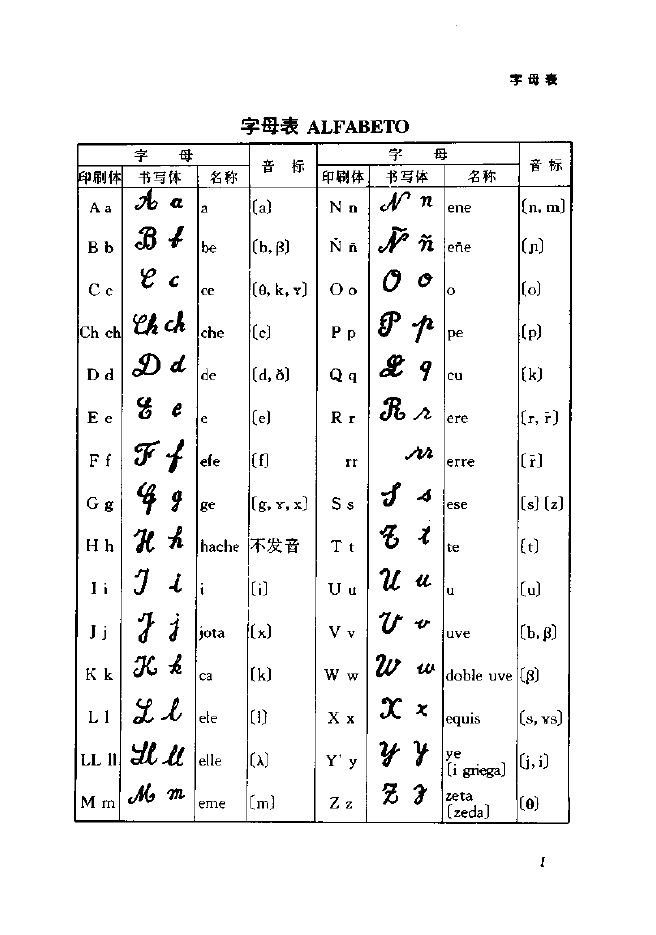 字母表
字母表 ALFABETO
字 母 音 标 字 母 音 标
印刷体 书写体 名称 印刷体 书写体 名称
A a A a a (a) N n N n ene (n, m)
B b B b be (b, β) Ñ ñ Ñ ñ eñe (ɲ)
C c C c ce (θ, k, ɤ) O o O o o (o)
Ch ch Ch ch che (c) P p P p pe (p)
D d D d de (d, ð) Q q Q q cu (k)
E e E e e (e) R r R r ere (r, r̄)
F f F f efe (f) rr rr erre (r̄)
G g G g ge (g, ɤ, x) S s S s ese (s) (z)
H h H h hache 不发音 T t T t te (t)
I i I i i (i) U u U u u (u)
J j J j jota (x) V v V v uve (b, β)
K k K k ca (k) W w W w doble uve (β)
L l L l ele (l) X x X x equis (s, ɤs)
LL ll Ll ll elle (λ) Y y Y y ye (i griega) (j, i)
M m M m eme (m) Z z Z z zeta (zeda) (θ)
1